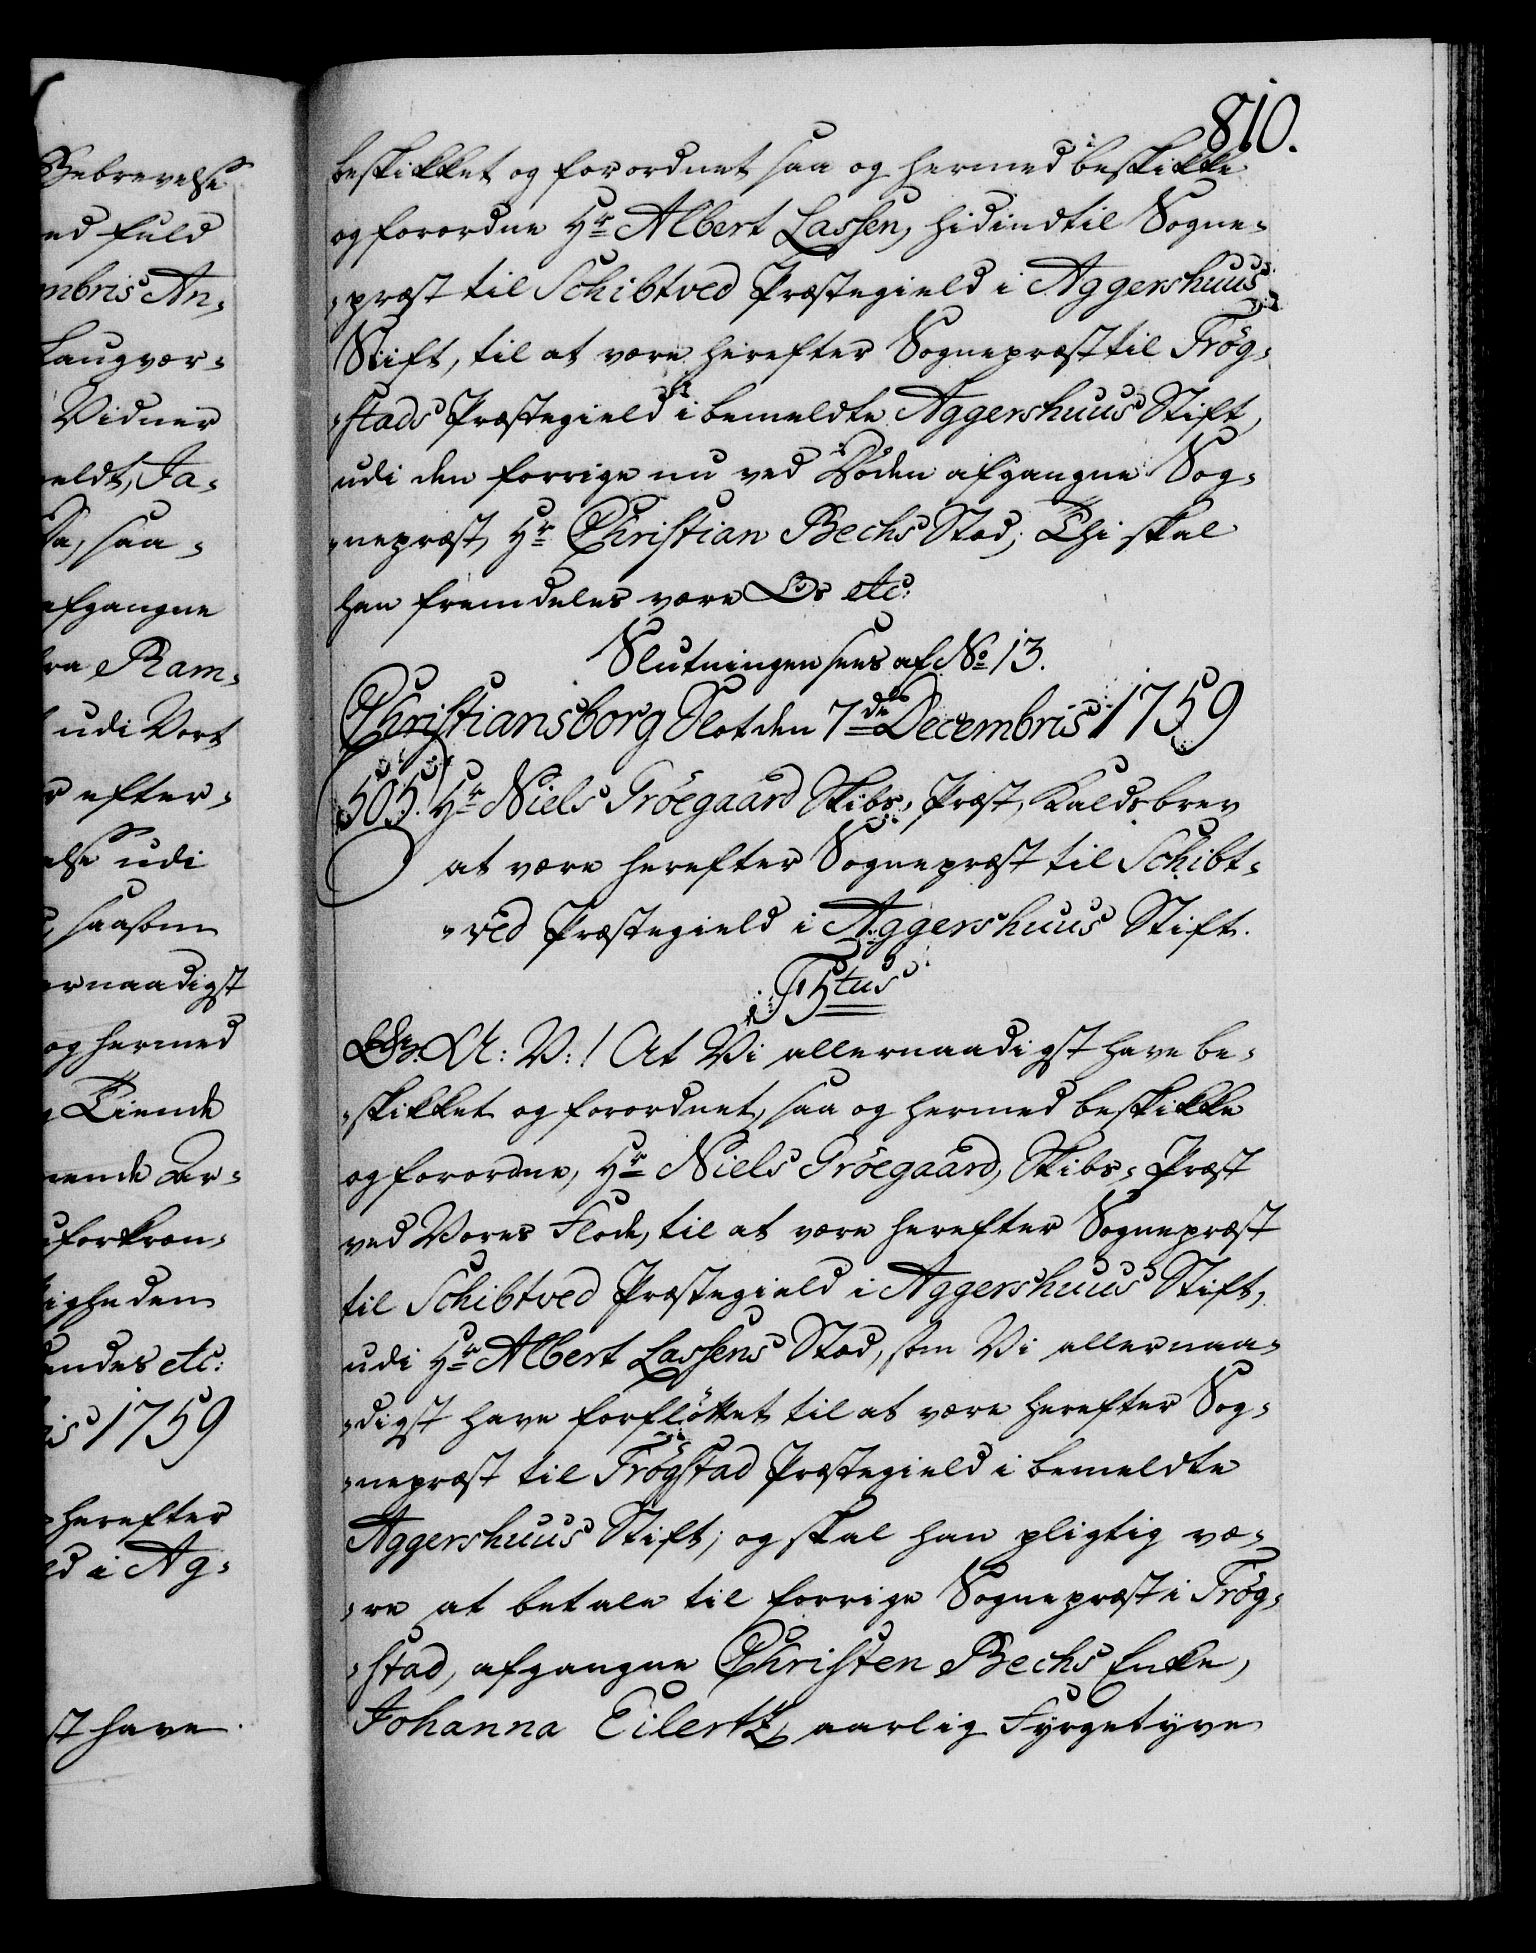 Bebrevelse
ed fuld
mbris An-
Laugvær-
Vidner
eldt, Ja-
saa-
afgangne
ra Ram-
udi Vort
r efter-
else udi
saasom
ernaadigst
og hermed
Tiende
uforkræn-
igheden
endes etc:
is 1759
herefter
ed i Ag-
st have
810.
beskikket og forordnet saa og hermed beskikke
og forordne Hr Albert Lassen, hidindtil Sogne-
-præst til Schibtved Præstegield i Aggershuus
Stift, til at være herefter Sognepræst til Trög-
-stads Præstegield i bemeldte Aggershuus Stift,
udi den forrige nu ved Döden afgangne Sog-
-nepræst, Hr Christian Bechs Stad; Thi skal
han fremdeles være Os etc:
Slutningen sees af No 13.
Christiansborg Slot den 7de Decembris 1759
505. Hr Niels Tröegaard Skibs-Præst, Kaldsbrev
at være herefter Sognepræst til Schibt-
-ved Præstegield i Aggershuus Stift.
F5tus
Gr. A: V:! At Vi allernaadigst have be-
-skikket og forordnet, saa og hermed beskikke
og forordne, Hr Niels Tröegaard, Skibs-Præst
ved Vores Flode, til at være herefter Sognepræst
til Schibtved Præstegield i Aggershuus Stift,
udi Hr Albert Lassens Stad, som Vi allernaa-
-digst have forflöttet til at være herefter Sog-
-nepræst til Trögstad Præstegield i bemeldte
Aggershuus Stift; og skal han pligtig væ-
-re at betale til forrige Sognepræst i Trög-
-stad, afgangne Christen Bechs Enke,
Johanna Eilertz, aarlig Fyrgetyve